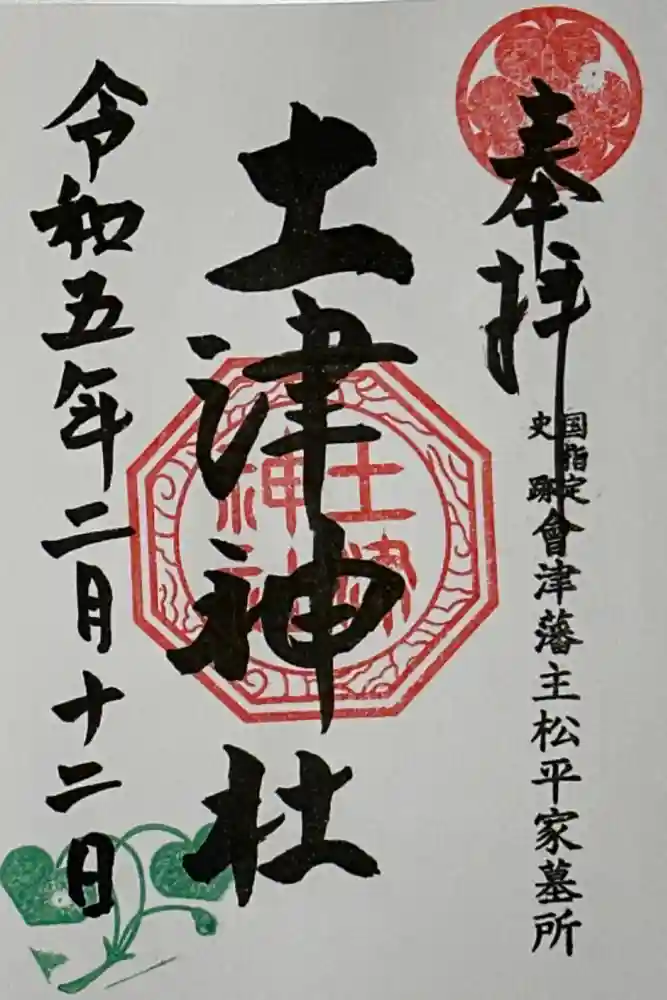 奉拝
国指定
史跡
會津藩主松平家墓所
土津神社
土津
神社
令和五年二月十二日